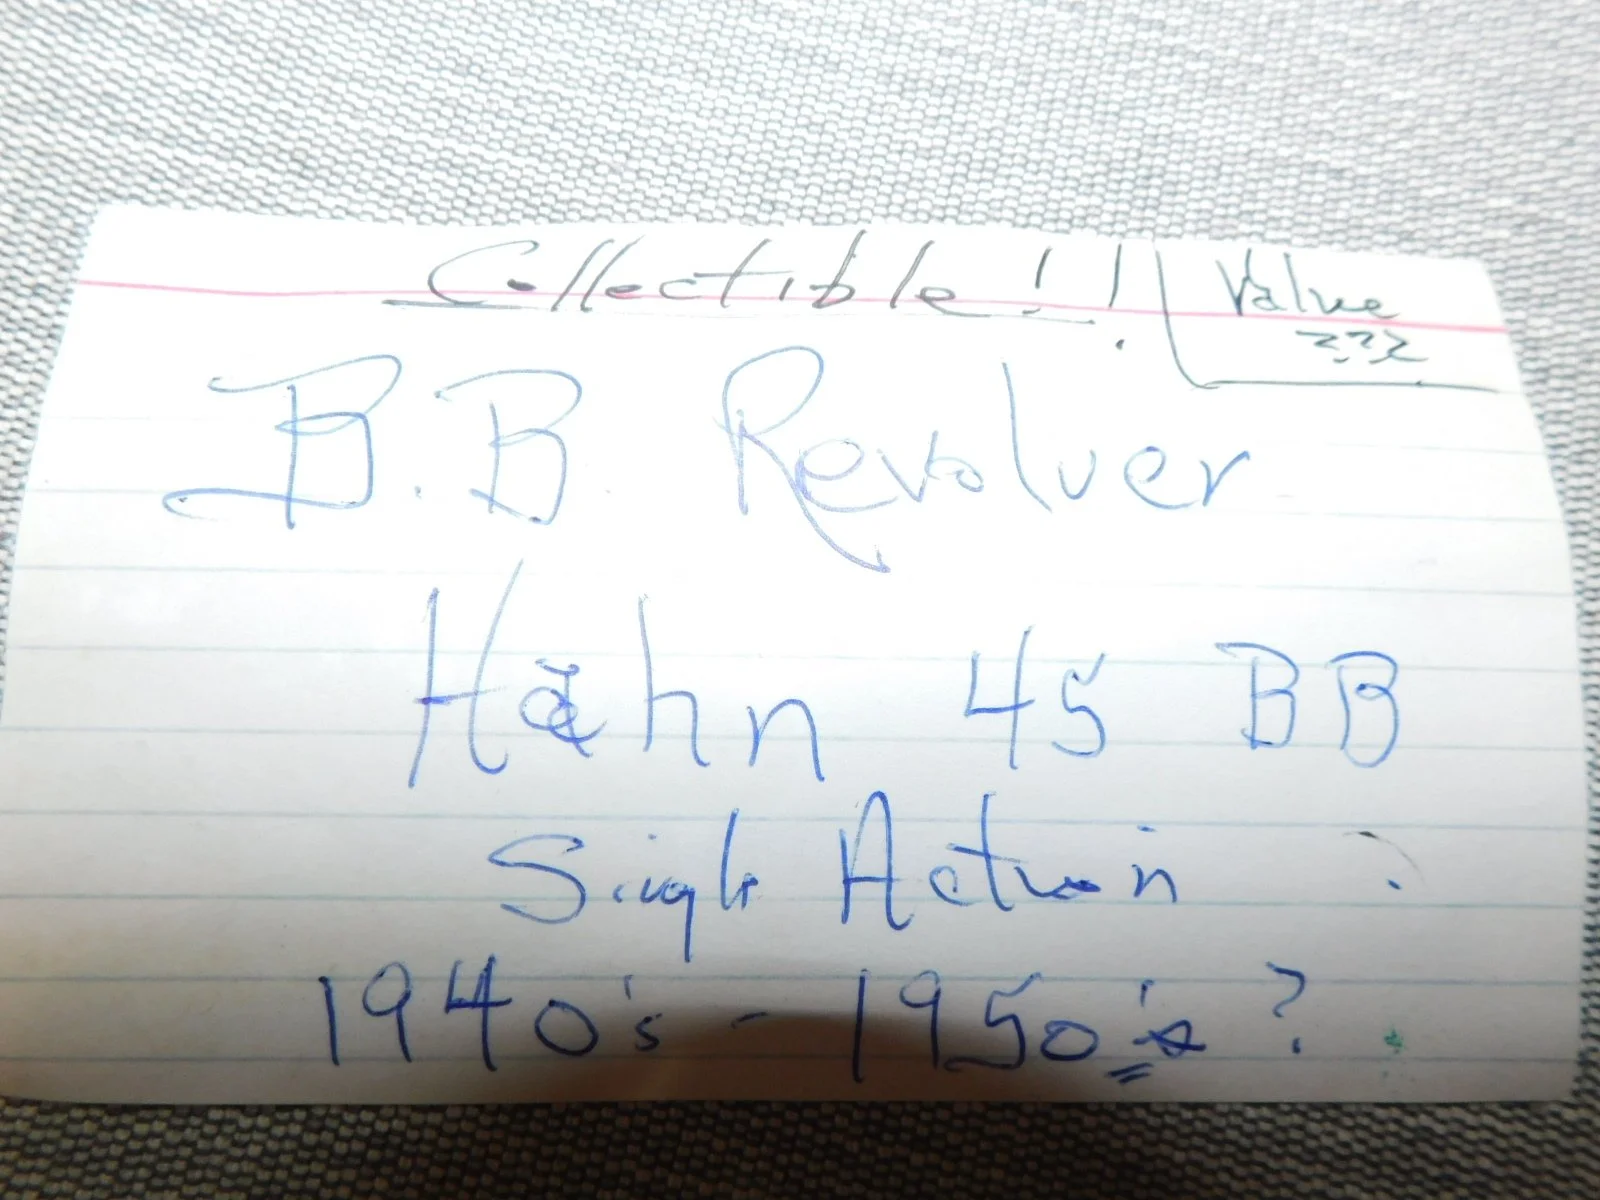 Collectible!! Value
???
B.B. Revolver
Hahn 45 BB
Single Action ?
1940's - 1950's ?